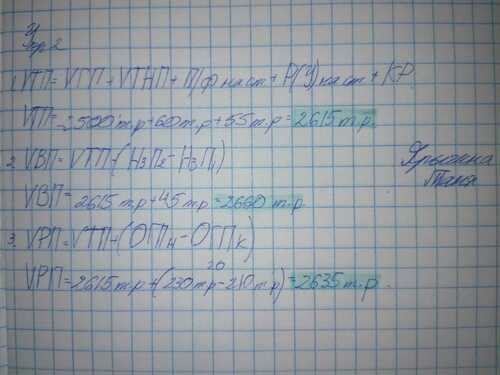 пр 2
1. VТП = VГП + VТНП + П/ф на ст + Р(У) на ст + КР
VТП = 2500 т.р + 60 т.р + 55 т.р = 2615 т.р.
2. VВП = VТП + (НзПк - НзПн)
VВП = 2615 т.р + 45 т.р = 2660 т.р.
3. VРП = VТП + (ОГПн - ОГПк)
20
VРП = 2615 т.р + (230 т.р - 210 т.р) = 2635 т.р.
Таня